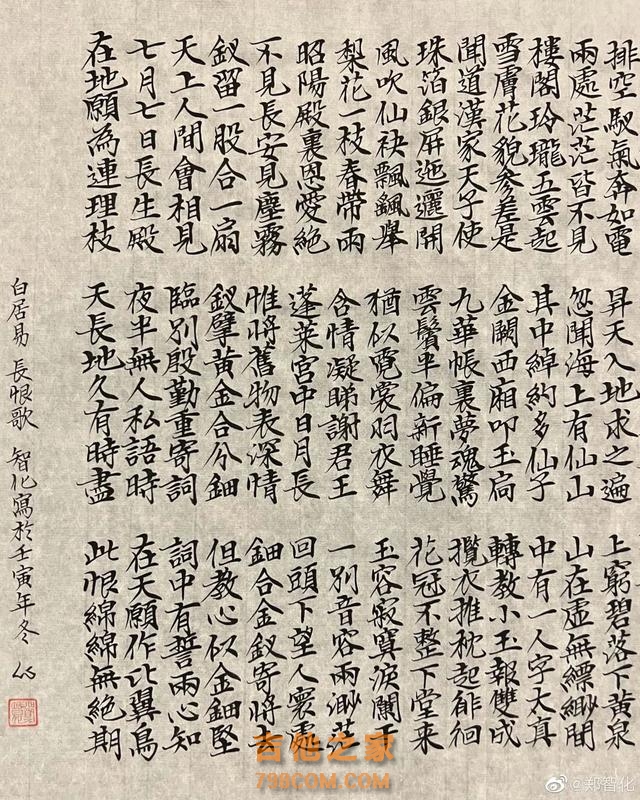 排空馭氣奔如電 昇天入地求之遍 上窮碧落下黃泉
兩處茫茫皆不見 忽聞海上有仙山 山在虛無縹緲間
樓閣玲瓏五雲起 其中綽約多仙子 中有一人字太真
雪膚花貌參差是 金闕西廂叩玉扃 轉教小玉報雙成
聞道漢家天子使 九華帳裏夢魂驚 攬衣推枕起徘徊
珠箔銀屏迤邐開 雲鬢半偏新睡覺 花冠不整下堂来
風吹仙袂飄飖舉 猶似霓裳羽衣舞 玉容寂寞淚闌干
梨花一枝春帶雨 含情凝睇謝君王 一別音容兩渺茫
昭陽殿裏恩愛絕 蓬萊宮中日月長 回頭下望人寰處
不見長安見塵霧 惟將舊物表深情 鈿合金釵寄將去
釵留一股合一扇 釵擘黃金合分鈿 但教心似金鈿堅
天上人間會相見 臨別殷勤重寄詞 詞中有誓兩心知
七月七日長生殿 夜半無人私語時 在天願作比翼鳥
在地願為連理枝 天長地久有時盡 此恨綿綿無絕期
白居易 長恨歌 智化寫於壬寅年冬
吉他之家
798COM.COM
@郑智化